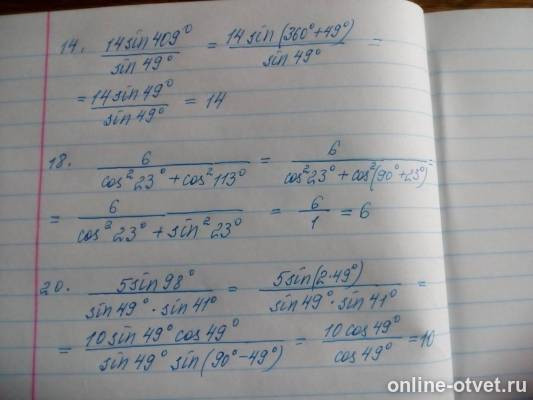 14. 14sin409°/sin49° = 14sin(360°+49°)/sin49° =
= 14sin49°/sin49° = 14
18. 6/cos²23°+cos²113° = 6/cos²23°+cos²(90°+23°) =
= 6/cos²23°+sin²23° = 6/1 = 6
20. 5sin98°/sin49°·sin41° = 5sin(2·49°)/sin49°·sin41° =
= 10sin49°cos49°/sin49°sin(90°-49°) = 10cos49°/cos49° = 10
online-otvet.ru